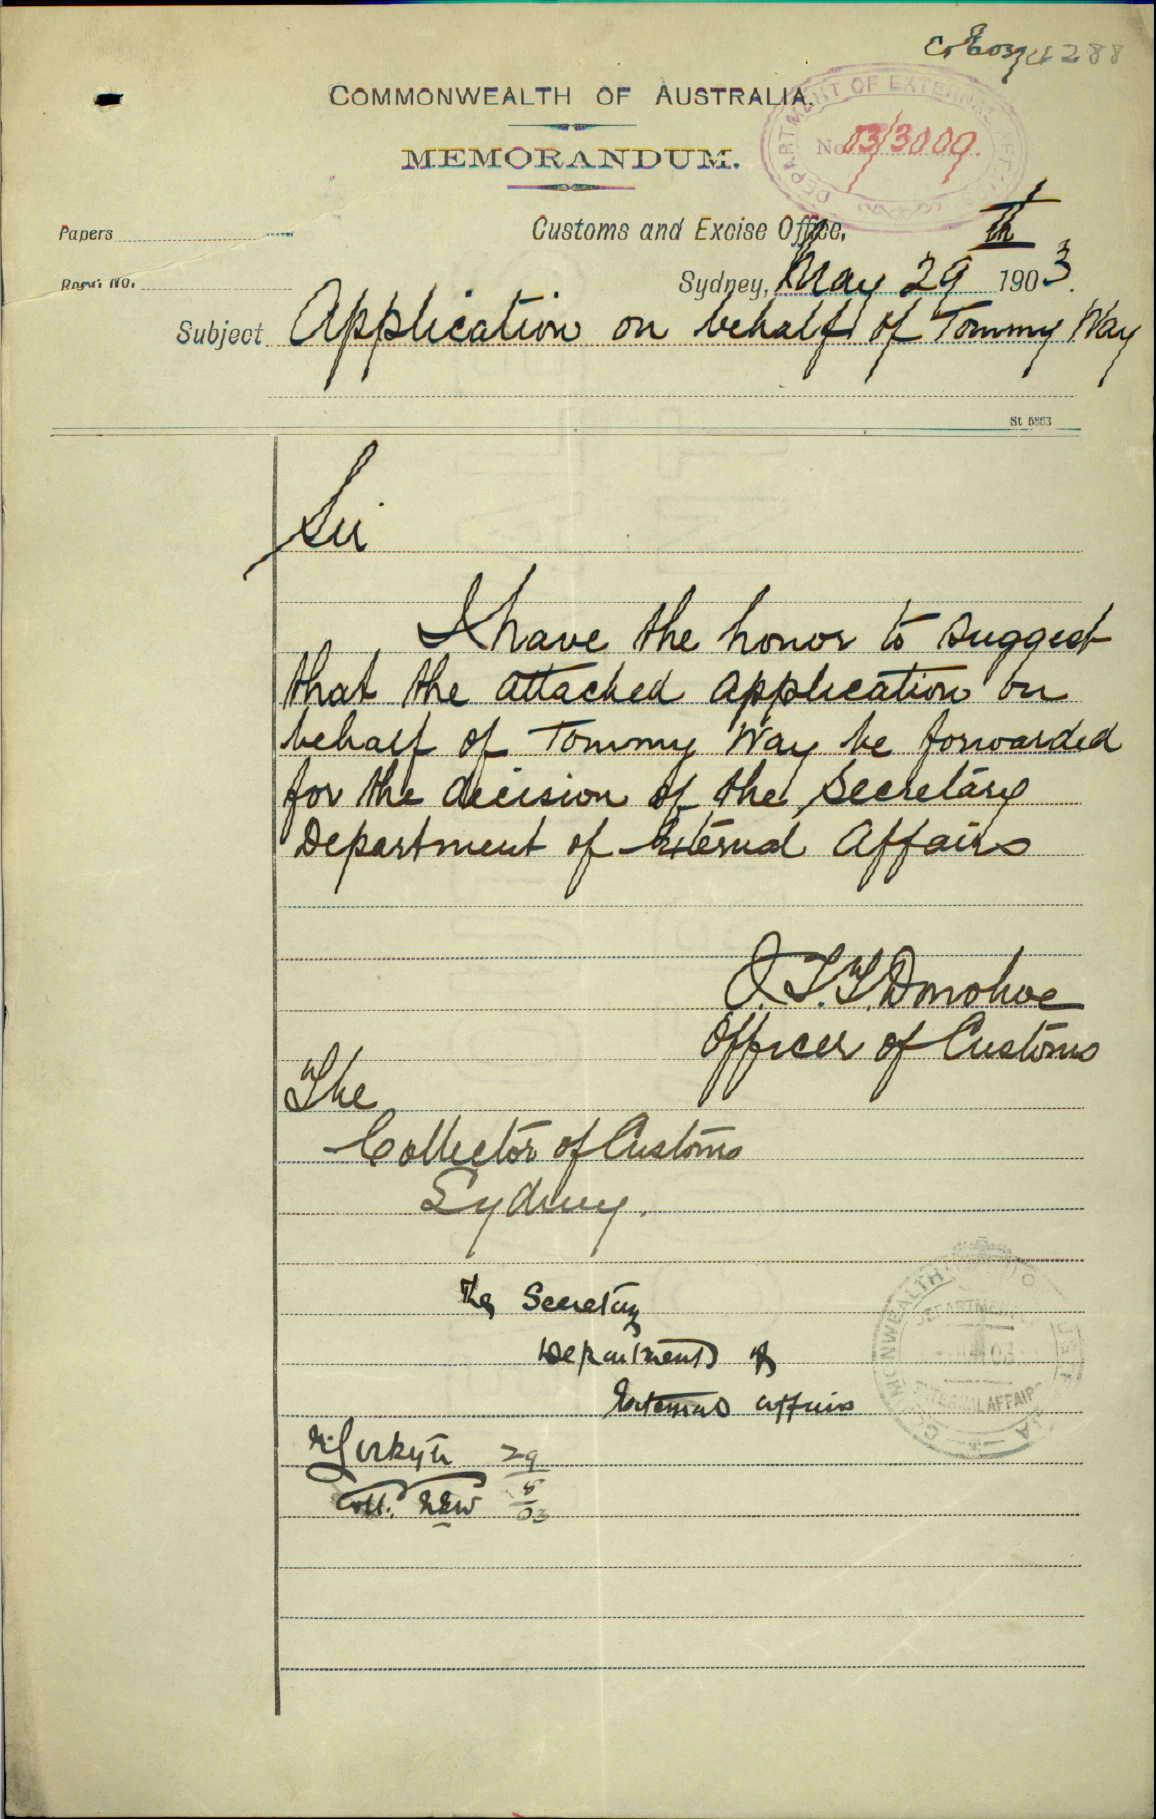 4288
COMMONWEALTH OF AUSTRALIA.
DEPARTMENT OF EXTERNAL AFFAIRS
No 03/3009.
MEMORANDUM.
Papers
Customs and Excise Office,
Regd. No.
Sydney, May 29th 1903.
Subject Application on behalf of Tommy Way
St 5863
Sir
I have the honor to suggest
that the attached application on
behalf of Tommy Way be forwarded
for the decision of the Secretary
Department of External Affairs
Donohoe
Officer of Customs
The
Collector of Customs
Sydney.
The Secretary
Department of
External Affairs
29
Coll. NSW 5
03
COMMONWEALTH OF AUSTRALIA
DEPARTMENT
EXTERNAL AFFAIRS